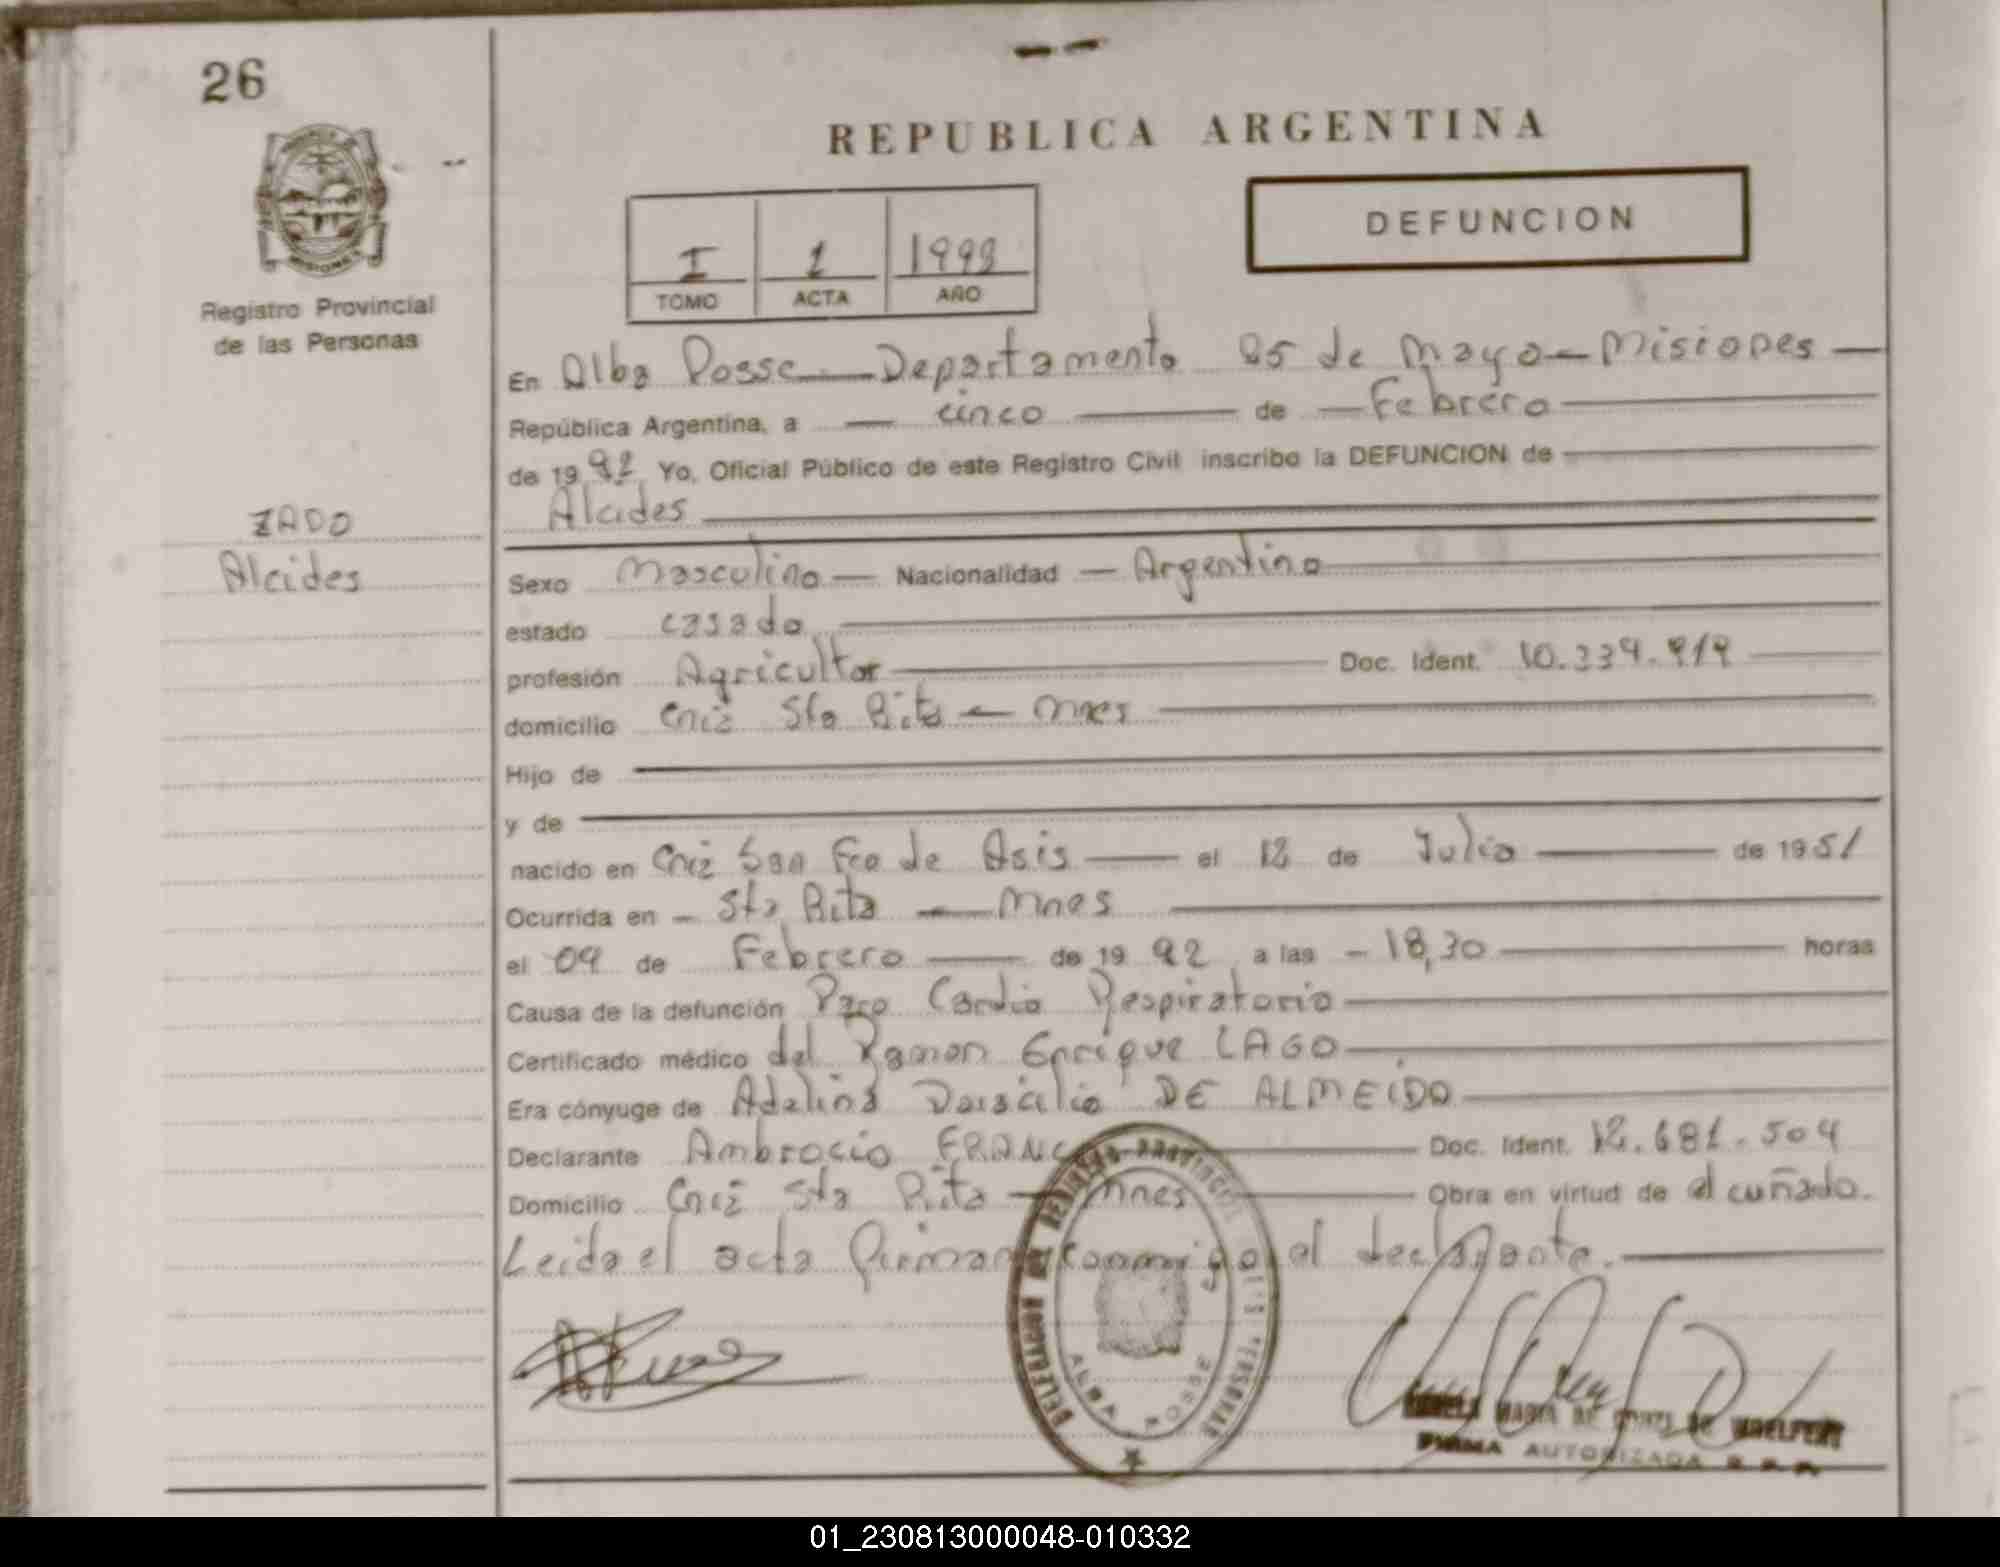 26
REPUBLICA ARGENTINA
DEFUNCION
I 1 1992
TOMO ACTA AÑO
MISIONES
Registro Provincial
de las Personas
En Alba Posse Departamento 25 de Mayo Misiones
República Argentina, a cinco de Febrero
de 1992 Yo, Oficial Público de este Registro Civil inscribo la DEFUNCION de
Alcides
ZADO
Alcides
Sexo Masculino Nacionalidad Argentino
estado casado
profesión Agricultor Doc. Ident.
domicilio Sta Rita Mnes
Hijo de
y de
nacido en San Fco de Asis el 12 de Julio de 1951
Ocurrida en Sta Rita Mnes
el 04 de Febrero de 1992 a las 18,30 horas
Causa de la defunción Paro Cardio Respiratorio
Certificado médico del Ramon Enrique LAGO
Era cónyuge de Adelina DE ALMEIDO
Declarante Ambrocio Doc. Ident. 12.681.504
Domicilio Sta Rita Mnes Obra en virtud de el cuñado.
Leida el acta firman conmigo el declarante.
DELEGACION DEL REGISTRO PROVINCIAL DE LAS PERSONAS
ALBA POSSE
FIRMA AUTORIZADA
01_230813000048-010332